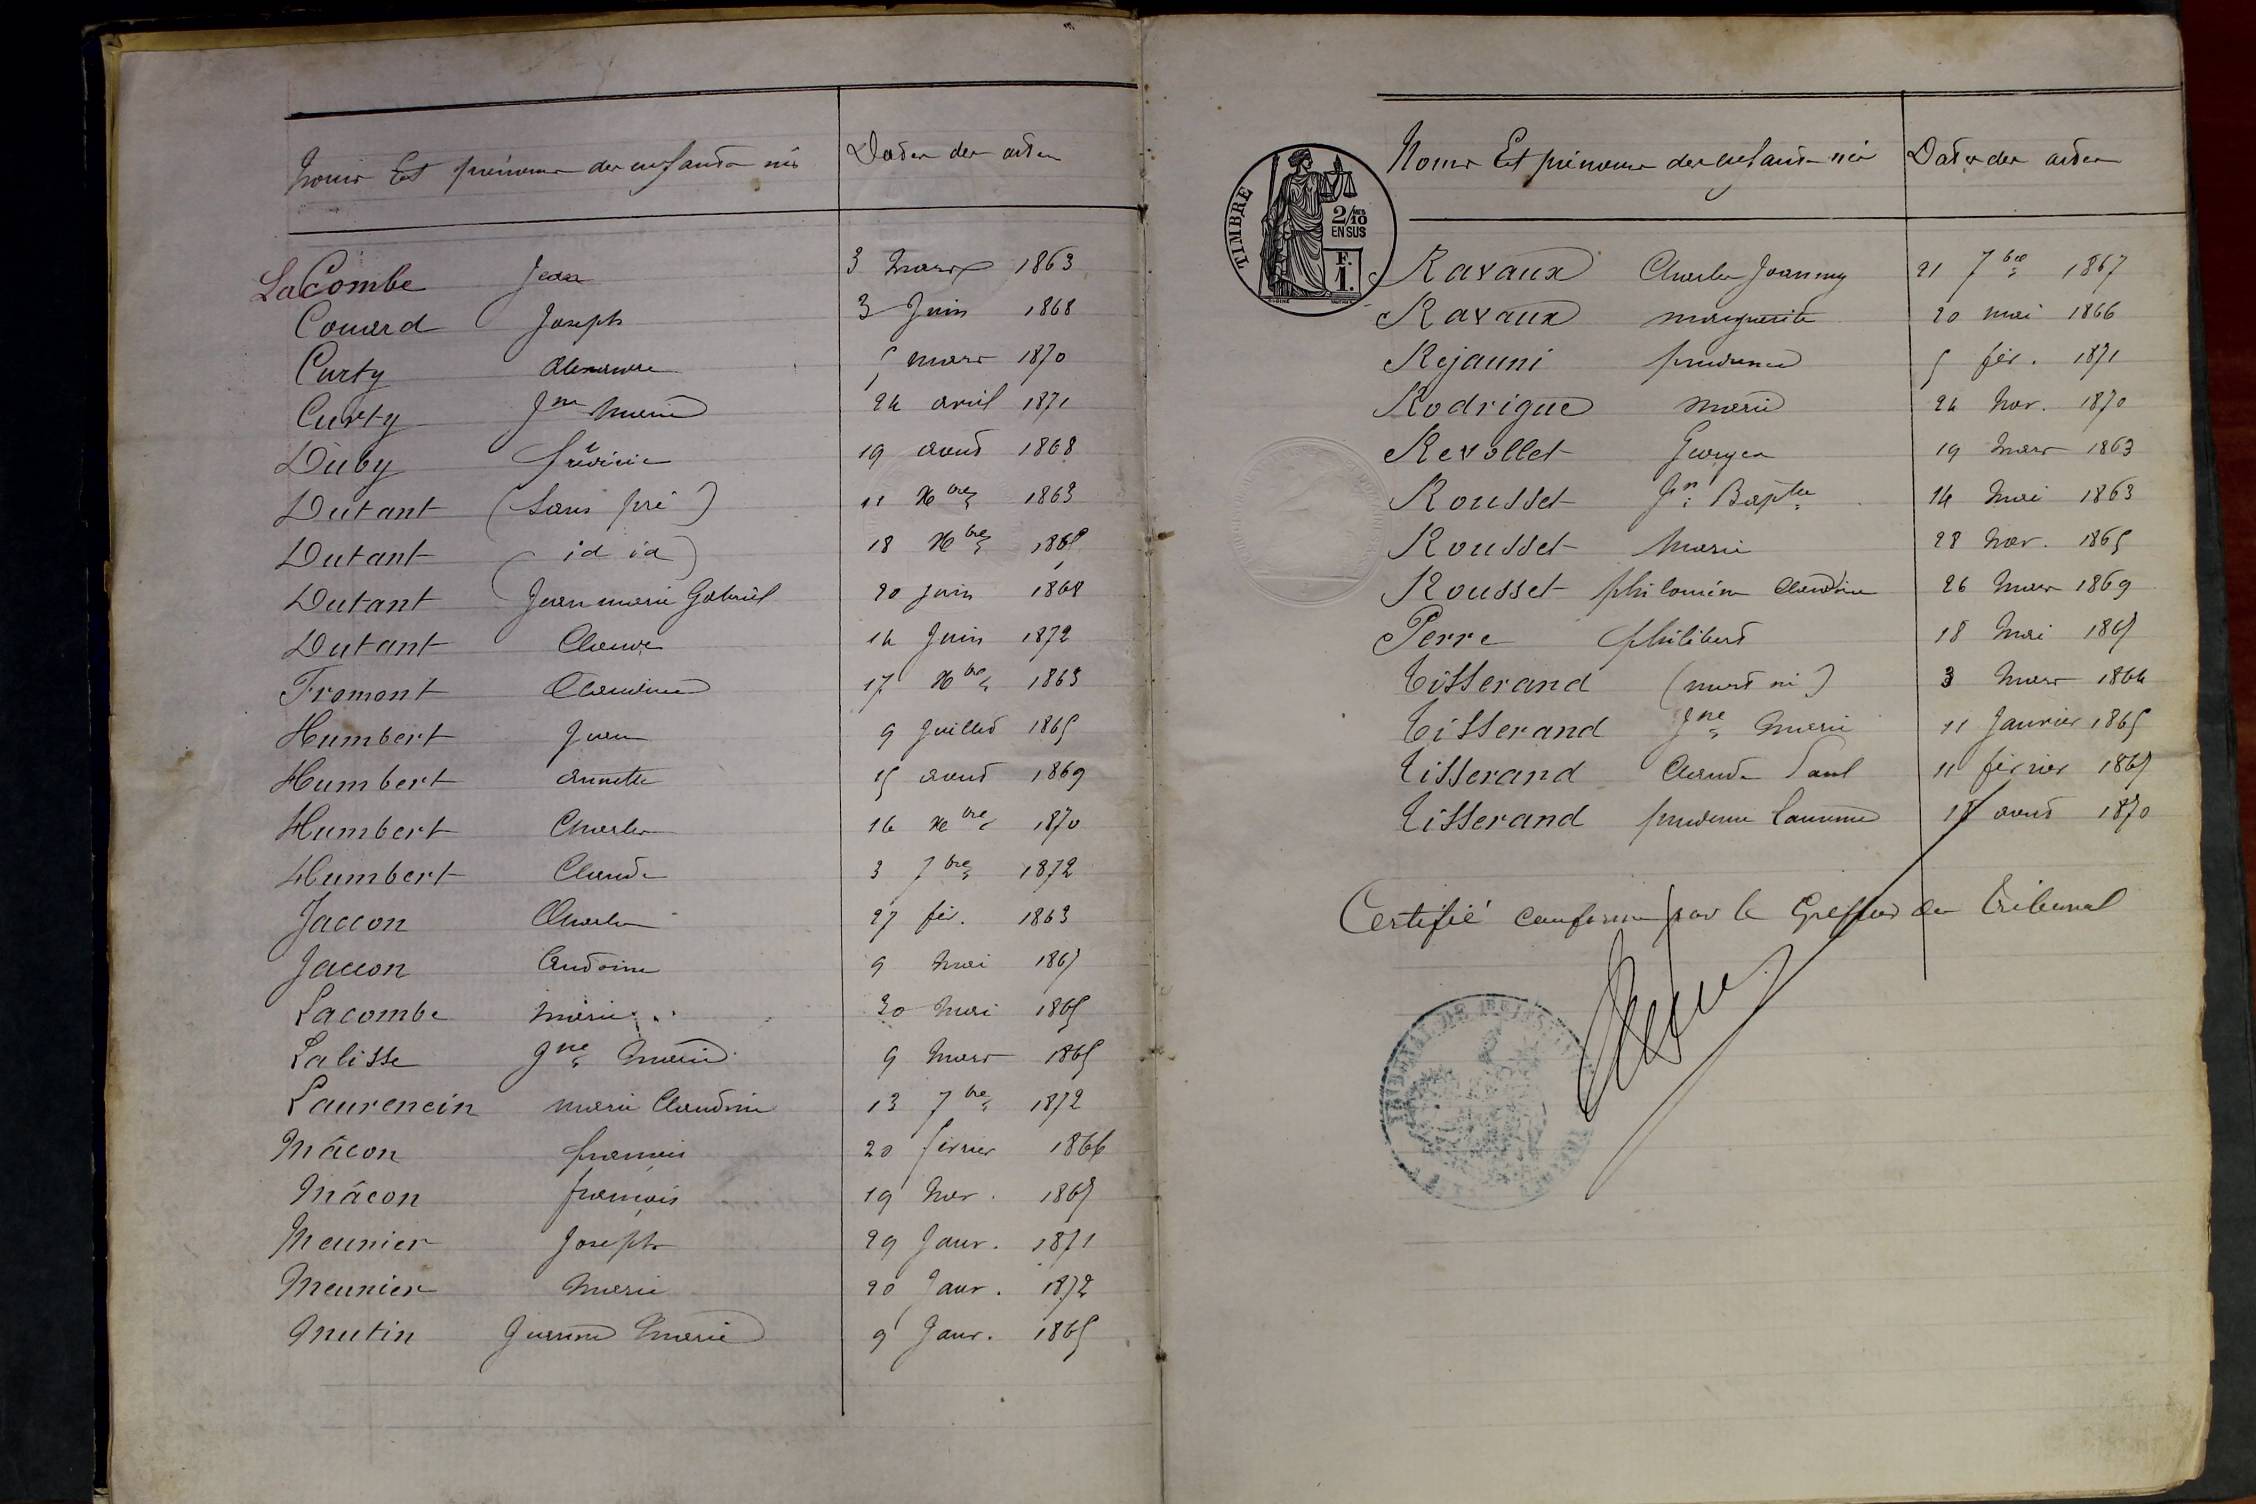 Noms Et prénoms des enfants nés Dates des actes
LaCombe Jean 3 mars 1863
Couard Joseph 3 Juin 1868
Curty Alexandre 5 mars 1870
Curty Jne Marie 24 avril 1871
Duby frédéric 19 août 1868
Dutant (Sans pré) 11 Xbre 1863
Dutant (id id) 18 Xbre 1865
Dutant Jean marie Gabriel 20 juin 1868
Dutant Claude 14 Juin 1872
Fromont Claudine 17 Xbre 1863
Humbert Jean 9 Juillet 1865
Humbert annette 15 août 1869
Humbert Charles 16 Xbre 1870
Humbert Claude 3 7bre 1872
Jaccon Charles 27 fév. 1863
Jaccon Antoine 9 Mai 1867
Lacombe marie 30 Mai 1865
Lalisse Jne Marie 9 Mars 1865
Laurencin marie Claudine 13 7bre 1872
Mâcon françois 20 février 1866
Mâcon françois 19 Nov. 1867
Meunier Joseph 29 Janv. 1871
Meunier Marie 20 Janv. 1872
Mutin Jeanne Marie 9 Janv. 1865
TIMBRE
2/10 EN SUS
F. 1.
Noms Et prénoms des enfants nés Dates des actes
Ravaux Charles Joanny 21 7bre 1867
Ravaux marguerite 20 mai 1866
Rejauni prudence 5 fév. 1871
Rodrigue marie 24 Nov. 1870
Revollet Georges 19 Mars 1863
Rousset Jn Bapte 14 Mai 1863
Rousset Marie 28 Nov. 1865
Rousset philomène Claudine 26 Mars 1869
Perre philibert 18 Mai 1867
Tisserand (mort né) 3 Mars 1864
Tisserand Jne Marie 11 Janvier 1865
Tisserand Claude Paul 11 février 1867
Tisserand prudence 18 août 1870
Certifié conforme par le Greffier du Tribunal
TRIBUNAL DE 1RE INST